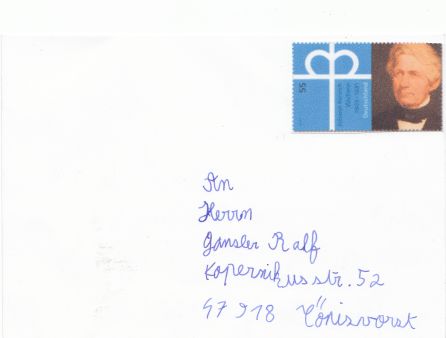 55
Johann Hinrich
Wichern
1808-1881
Deutschland
An
Herrn
Gansler Ralf
Kopernikusstr. 52
47918 Tönisvorst